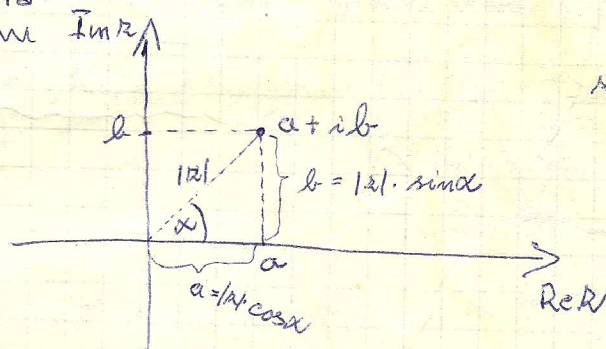 Im z
b
a + ib
|z|
b = |z| · sinα
α
a
a = |z| · cosα
Re z